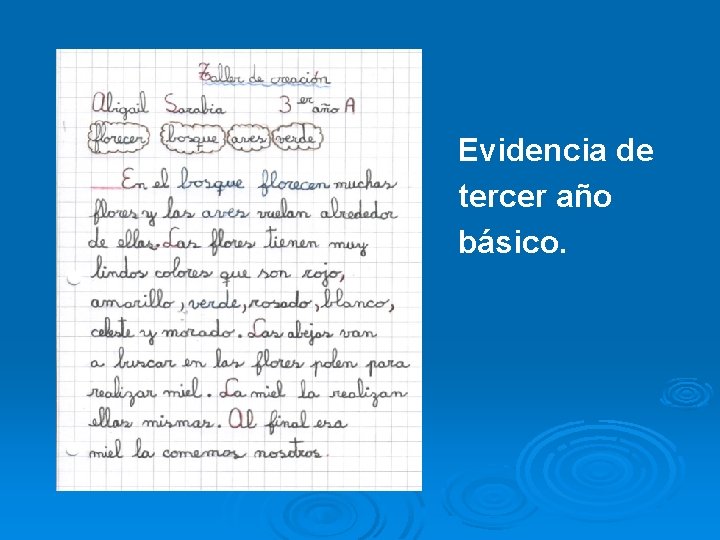 Taller de creación
Abigail Sarabia 3er año A
florecer bosque aves verde
En el bosque florecen muchas
flores y las aves vuelan alrededor
de ellas. Las flores tienen muy
lindos colores que son rojo,
amarillo, verde, rosado, blanco,
celeste y morado. Las abejas van
a buscar en las flores polen para
realizar miel. La miel la realizan
ellas mismas. Al final esa
miel la comemos nosotros.
Evidencia de
tercer año
básico.